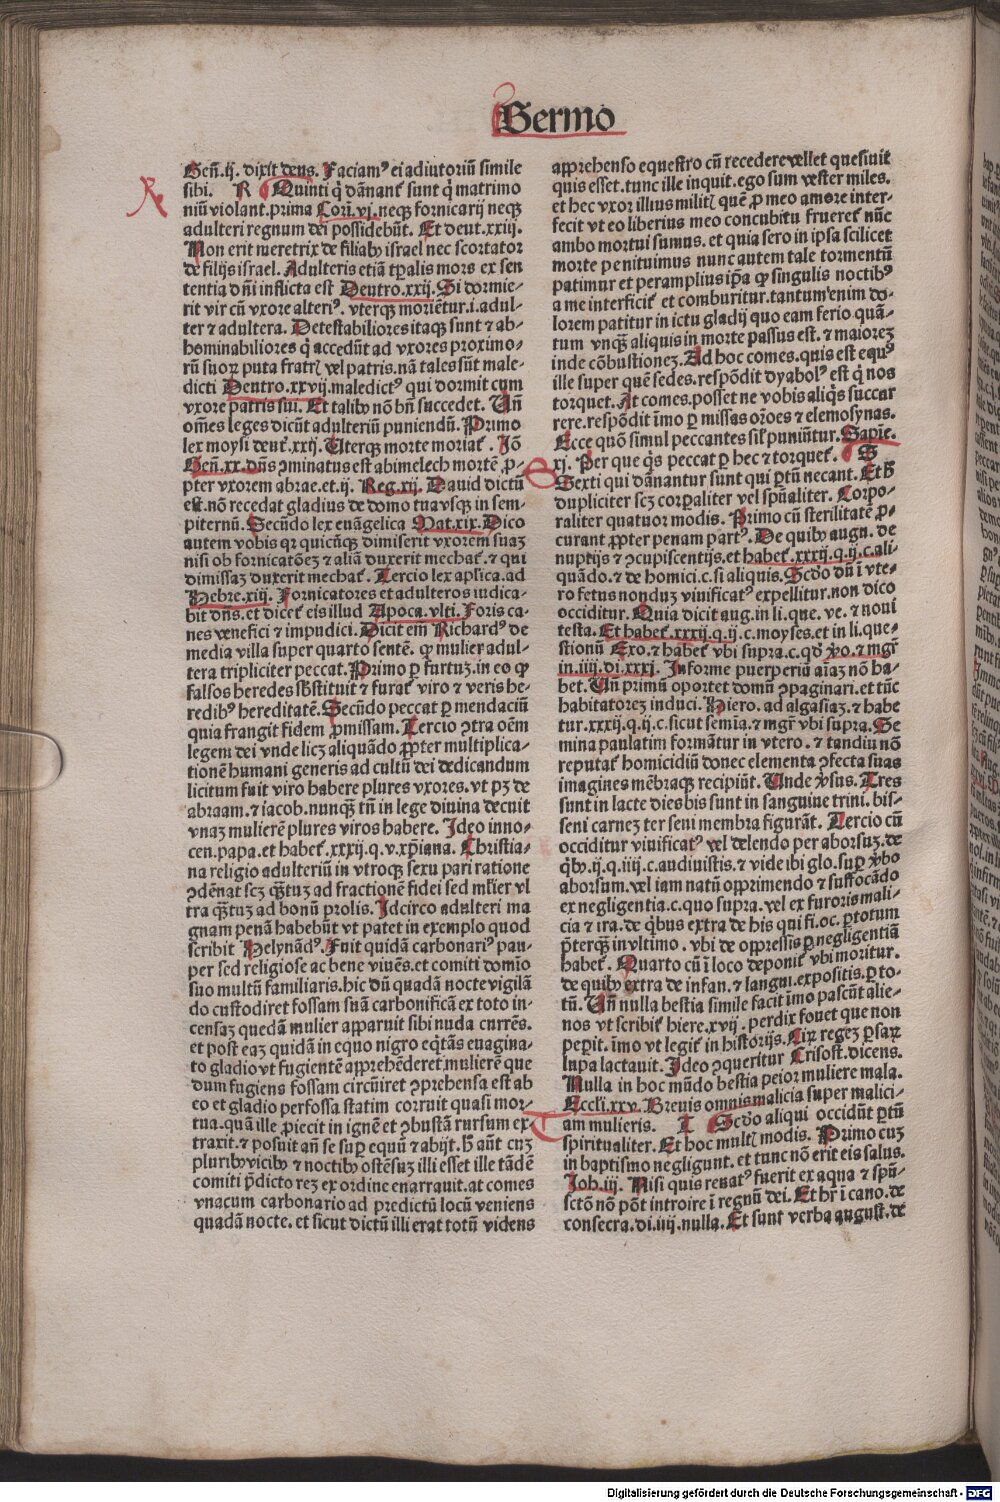 Sermo
Geñ.ij. dixit deus. Faciamꝰ ei adiutoriū simile
sibi. R Quinti q̇ dānant᷑ sunt q̇ matrimo
niū violant.prima Coɼ.vj.neqꝫ fornicarij neqꝫ
adulteri regnum dei possidebūt. Et deut.xxiij.
Non erit meretrix de filiabꝰ israel nec scortator
de filijs israel. Adulteris etiā tp̄alis mors ex sen
tentia dn̄i inflicta est Deutro.xxij. Si dormie⸗
rit vir cū vxore alteriꝰ. vterqꝫ morient᷑.i.adul⸗
ter ⁊ adultera. Detestabiliores itaqꝫ sunt ⁊ ab⸗
hominabiliores q̇ accedūt ad vxores proximo⸗
rū suoꝝ puta fratrꝭ vel patris.nā tales sūt male⸗
dicti Deutro.xxvij.maledictꝰ qui dormit cum
vxore patris sui. Et talibꝰ nō bn̄ succedet. Vn̄
om̄es leges dicūt adulteriū puniendū. Primo
lex moysi deut᷑.xxij. Vterqꝫ morte moriat᷑. Jō
Geñ.xx.dn̄s ↄminatus est abimelech mortē ꝓ⸗
pter vxorem abrae.et.ij. Reg.xij. Dauid dictū
est.nō recedat gladius de domo tua vsqꝫ in sem⸗
piternū. Secūdo lex euāgelica Mat.xix. Dico
autem vobis qꝛ quicūqꝫ dimiserit vxorem suaꝫ
nisi ob fornicatōeꝫ ⁊ aliā duxerit mechat᷑. ⁊ qui
dimissaꝫ duxerit mechat᷑. Tercio lex apl̄ica.ad
Hebre.xiij. Fornicatores et adulteros iudica⸗
bit dn̄s.et dicet᷑ eis illud Apoca.vlti. Foris ca⸗
nes venefici ⁊ impudici. Dicit em̄ Richardꝰ de
media villa super quarto sentē. ꝙ mulier adul⸗
tera tripliciter peccat. Primo ꝑ furtuꝫ.in eo ꝙ
falsos heredes sb̄stituit ⁊ furat᷑ viro ⁊ veris he⸗
redibꝰ hereditatē. Secūdo peccat ꝑ mendaciū
quia frangit fidem ꝓmissam. Tercio ↄtra oēm
legem dei vnde licꝫ aliquādo ꝓpter multiplica⸗
tionē humani generis ad cultū dei dedicandum
licitum fuit viro habere plures vxores. vt pꝫ de
abraam.⁊ iacob.nunqꝫ tn̄ in lege diuina decuit
vnaꝫ mulierē plures viros habere. Ideo inno⸗
cen.papa.et habet᷑.xxxij.q.v.xp̄iana. Christia⸗
na religio adulteriū in vtroqꝫ sexu pari ratione
ↄdēnat scꝫ q̄tuꝫ ad fractionē fidei sed ml̄ier vl
tra q̄tuꝫ ad bonū prolis. Idcirco adulteri ma
gnam penā habebūt vt patet in exemplo quod
scribit Helynādꝰ. Fuit quidā carbonariꝰ pau⸗
per sed religiose ac bene viuēs.et comiti domīo
suo multū familiaris.hic dū quadā nocte vigilā
do custodiret fossam suā carbonificā ex toto in⸗
censaꝫ quedā mulier apparuit sibi nuda currēs.
et post eaꝫ quidā in equo nigro eq̇tās euagina⸗
to gladio vt fugientē apprehēderet mulierē que
dum fugiens fossam circūiret ↄprehensa est ab
eo et gladio perfossa statim corruit quasi mor⸗
tua.quā ille ꝓiecit in ignē et ↄbustā rursum ex⸗
traxit.⁊ posuit añ se suꝑ equū ⁊ abijt. h̄ aūt cuꝫ
pluribꝰ vicibꝰ ⁊ noctibꝰ ostēsuꝫ illi esset ille tādē
comiti p̄dicto reꝫ ex ordine enarrauit.at comes
vnacum carbonario ad predictū locū veniens
quadā nocte.et sicut dictū illi erat totū videns
apprehenso equestro cū recedere vellet quesiuit
quis esset.tunc ille inquit.ego sum vester miles.
et hec vxor illius militꝭ quē ꝓ meo amore inter⸗
fecit vt eo liberius meo concubitu frueret᷑ nūc
ambo mortui sumus.et quia sero in ipsa scilicet
morte penituimus nunc autem tale tormentū
patimur et peramplius ip̄a ꝙ singulis noctibꝰ
a me interficit᷑ et comburitur.tantum enim do⸗
lorem patitur in ictu gladij quo eam ferio quā⸗
tum vnqꝫ aliquis in morte passus est.⁊ maioreꝫ
inde cōbustioneꝫ. Ad hoc comes.quis est equꝰ
ille super quē sedes.respōdit dyabolꝰ est q̇ nos
torquet. At comes.posset ne vobis aliq̇s succur
rere.respōdit īmo ꝑ missas or̄oes ⁊ elemosynas.
Ecce quō simul peccantes sil̄ puniūtur. Sapiē.
xj. Per que q̇s peccat ꝑ hec ⁊ torquet᷑. S
Sexti qui dānantur sunt qui ꝑtū necant. Et h̄
dupliciter scꝫ corꝑaliter vel sp̄ualiter. Corpo⸗
raliter quatuor modis. Primo cū sterilitatē ꝓ⸗
curant ꝓpter penam partꝰ. De quibꝰ augn. de
nuptijs ⁊ ↄcupiscentijs.et habet᷑.xxxij.q.ij.c.ali⸗
quādo.⁊ de homici.c.si aliquis. Scd̄o dū ī vte⸗
ro fetus nonduꝫ viuificatꝰ expellitur.non dico
occiditur. Quia dicit aug.in li.que. ve. ⁊ noui
testa. Et habet᷑.xxxij.q.ij.c.moyses.et in li.que⸗
stionū Exo.⁊ habet᷑ vbi supra.c.qd̄ ꝟo.⁊ mgr̄
in.iiij.di.xxxj. Informe puerperiū aīaꝫ nō ha⸗
bet. Vn̄ primū oportet domū ↄpaginari.et tūc
habitatoreꝫ induci. Hiero. ad algasiaꝫ.⁊ habe
tur.xxxij.q.ij.c.sicut semia.⁊ mgr̄ vbi supra. Se
mina paulatim formātur in vtero. ⁊ tandiu nō
reputat᷑ homicidiū donec elementa ↄfecta suas
imagines mēbraqꝫ recipiūt. Vnde ꝟsus. Tres
sunt in lacte dies bis sunt in sanguine trini. bis⸗
seni carneꝫ ter seni membra figurāt. Tercio cū
occiditur viuificatꝰ vel delendo per aborsuꝫ.de
q̇bꝰ.ij.q.iiij.c.audiuistis.⁊ vide ibi glo.suꝑ ꝟbo
aborsum.vel iam natū opprimendo ⁊ suffocādo
ex negligentia.c.quo supra.vel ex furoris mali⸗
cia ⁊ ira.de q̇bus extra de his qui fi.oc. ꝑ totum
p̄terqꝫ in vltimo. vbi de oppressis ꝑ negligentiā
habet᷑. Quarto cū ī loco deponit᷑ vbi moritur.
de quibꝰ extra de infan.⁊ langui.expositis.ꝑ to⸗
tū. Vn̄ nulla bestia simile facit īmo pascūt alie⸗
nos vt scribit᷑ hiere.xvij. perdix fouet que non
peꝑit. īmo vt legit᷑ in historijs. Cirꝰ regeꝫ ꝑsaꝝ
lupa lactauit. Ideo ↄqueritur Crisost.dicens.
Nulla in hoc mūdo bestia peior muliere mala.
Eccli.xxv. Breuis omnis malicia super malici⸗
am mulieris. T Scd̄o aliqui occidūt ꝑtū
spiritualiter. Et hoc multꝭ modis. Primo cuꝫ
in baptismo negligunt. et tunc nō erit eis salus.
Joh.iij. Nisi quis renatꝰ fuerit ex aqua ⁊ spū⸗
sctō nō pōt introire ī regnū dei. Et hr̄ ī cano.de
consecra.di.iiij.nulla. Et sunt verba august.de
Digitalisierung gefördert durch die Deutsche Forschungsgemeinschaft - DFG